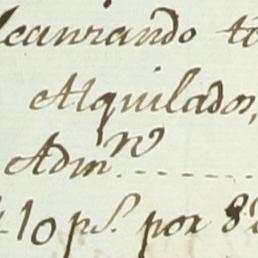 lcanzando to
Alquilados,
Admº̲ʳ......
10 pˢ. por 8